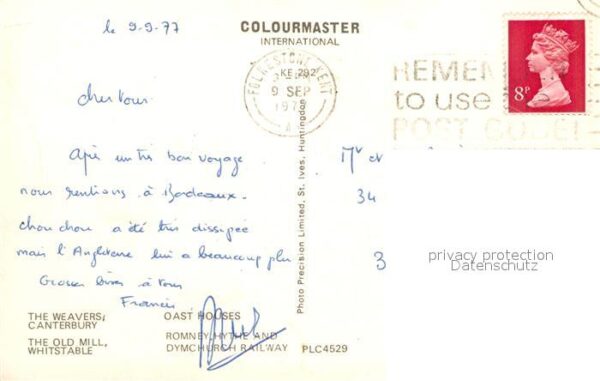 le 9-9-77
COLOURMASTER
INTERNATIONAL
FOLKESTONE KENT
KE 292
9 SEP
197
A
REMEM
to use
POST CODE!
8P
cher tous
Après un très bon voyage
nous rentrons à Bordeaux.
chouchou a été très dissipée
mais l'Angleterre lui a beaucoup plu
Grosses bises à tous
Francis
Mr et
34
3
Photo Precision Limited, St. Ives, Huntingdon
privacy protection
Datenschutz
THE WEAVERS,
CANTERBURY
THE OLD MILL,
WHITSTABLE
OAST HOUSES
ROMNEY HYTHE AND
DYMCHURCH RAILWAY
PLC4529